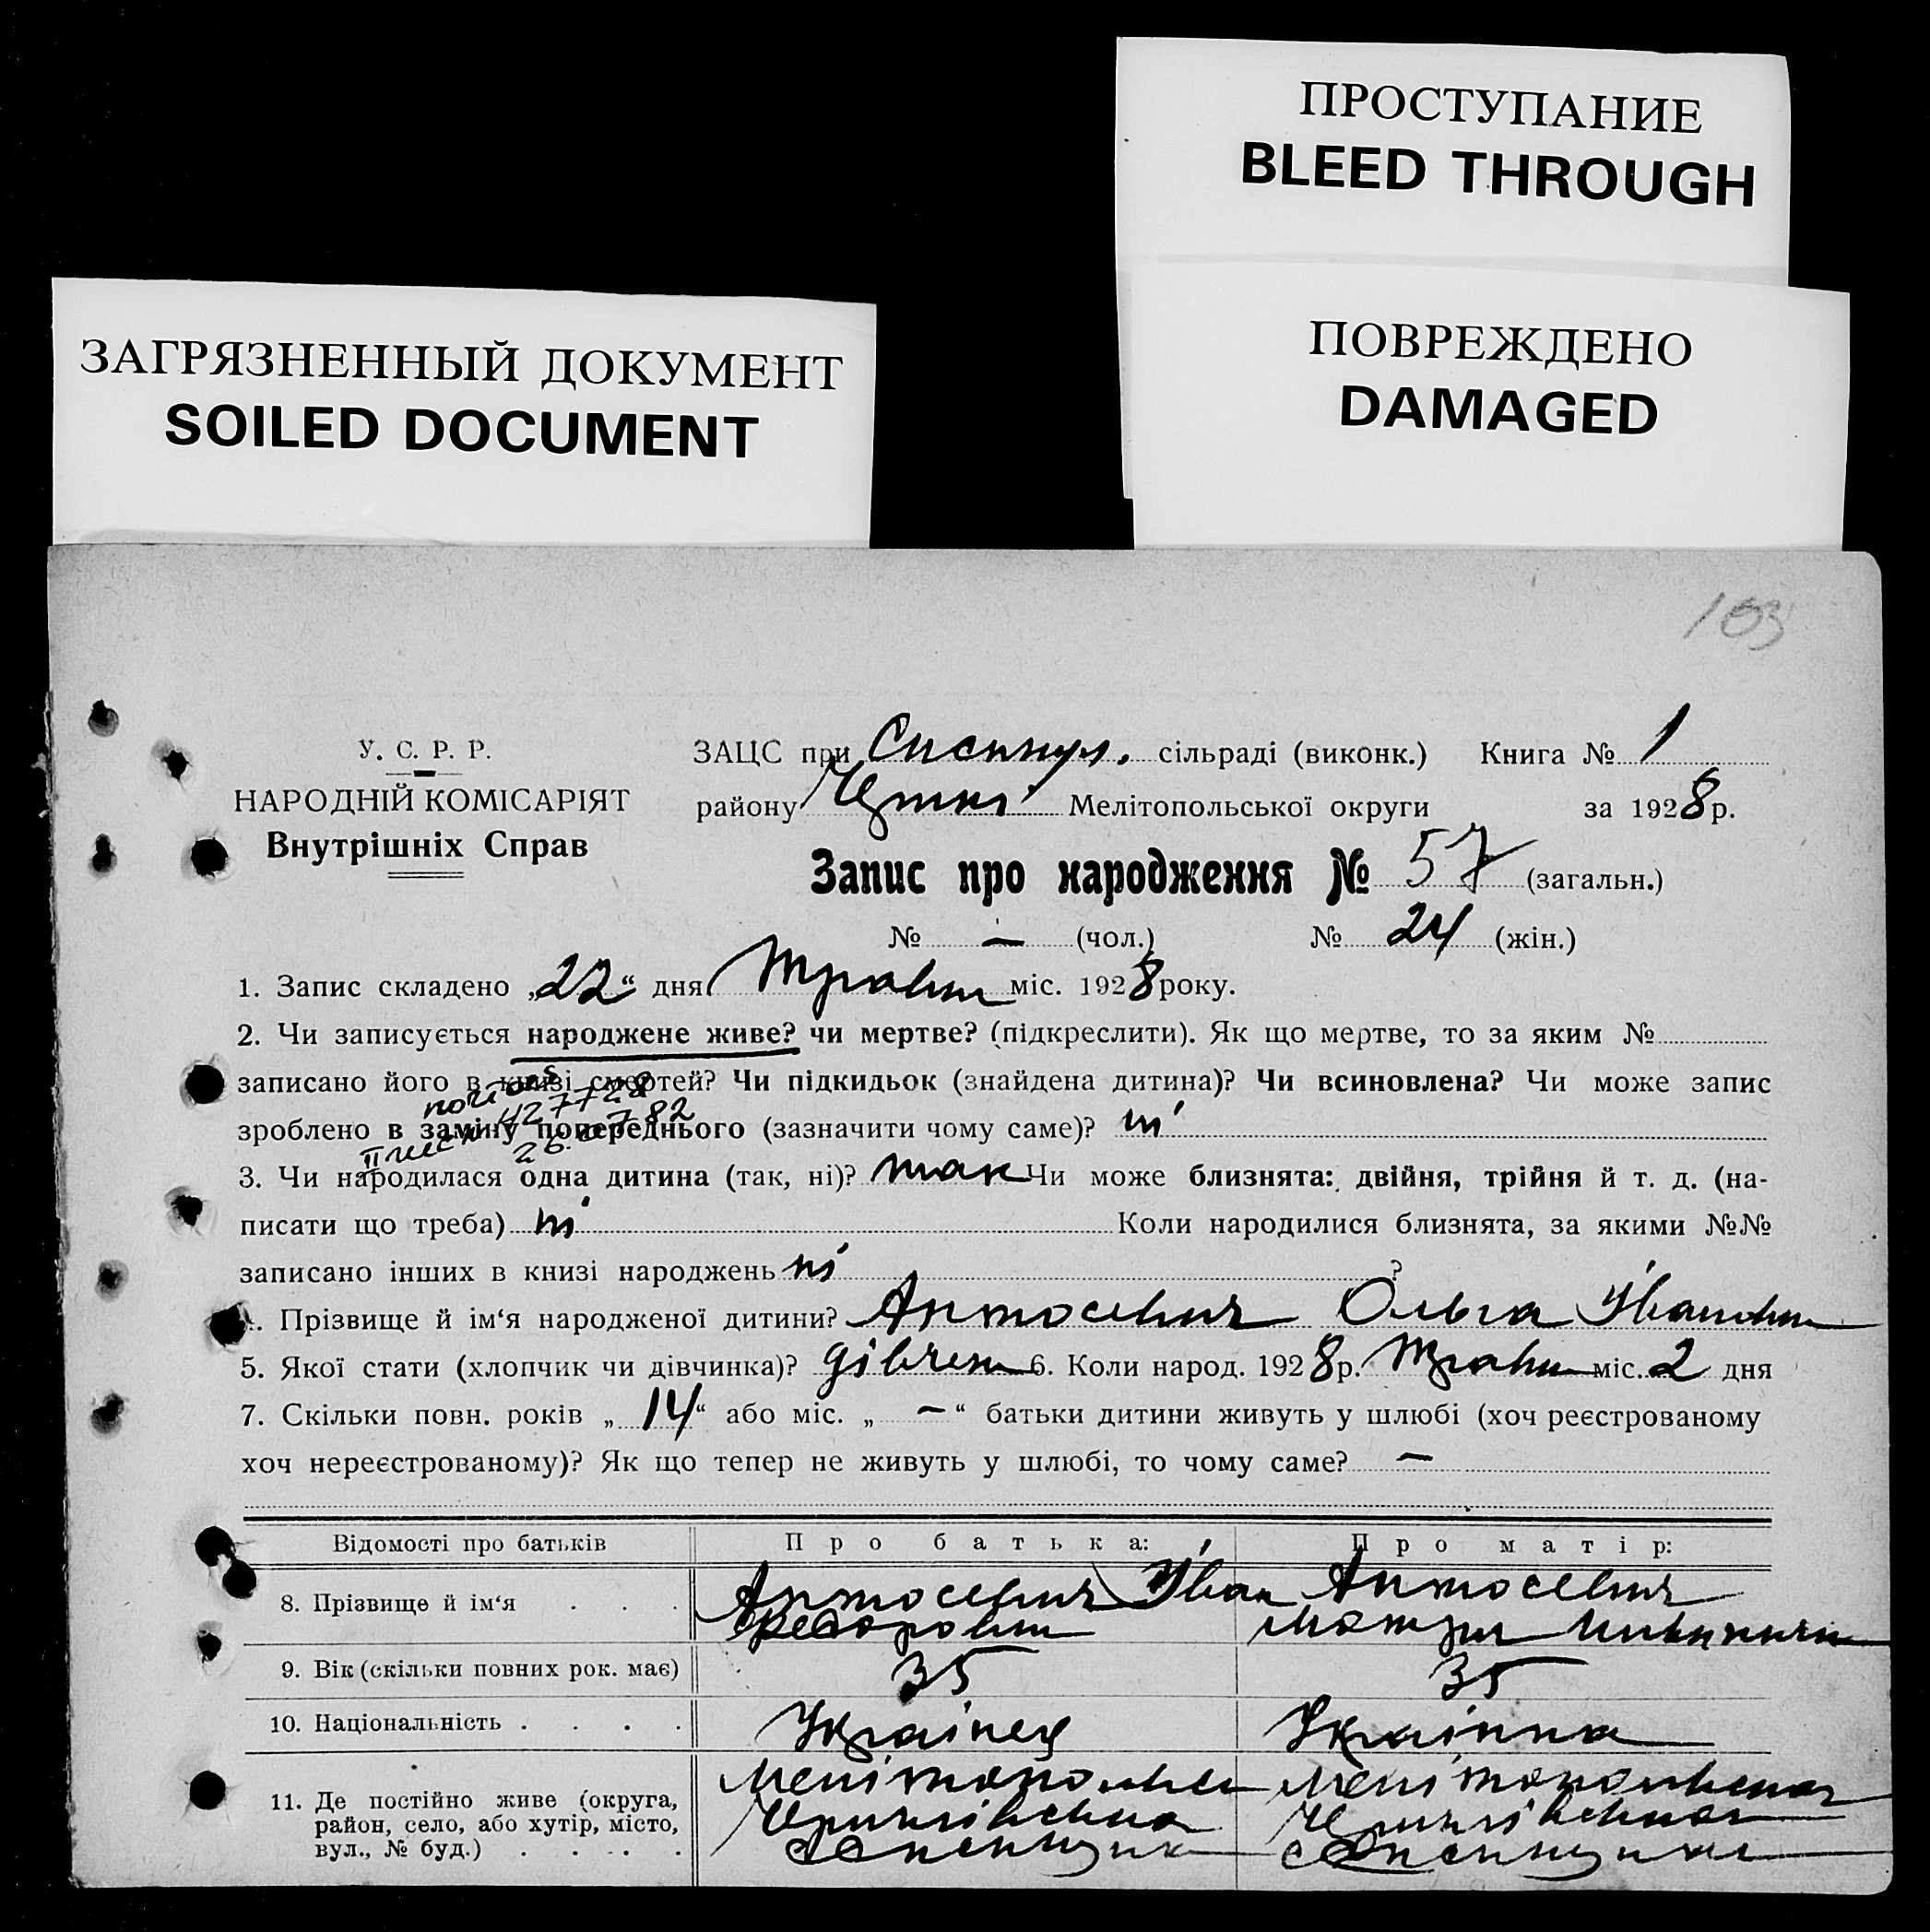 ПРОСТУПАНИЕ
BLEED THROUGH
ПОВРЕЖДЕНО
DAMAGED
ЗАГРЯЗНЕННЫЙ ДОКУМЕНТ
SOILED DOCUMENT
103
У. С. Р. Р.
НАРОДНІЙ КОМІСАРІЯТ
Внутрішніх Справ
ЗАЦС при сільраді (виконк.) Книга № 1
району Мелітопольської округи за 1928 р.
Запис про народження № 57 (загальн.)
№ — (чол.) № 24 (жін.)
1. Запис складено „22“ дня Травня міс. 1928 року.
2. Чи записується народжене живе? чи мертве? (підкреслити). Як що мертве, то за яким №
записано його в книзі смертей? Чи підкидьок (знайдена дитина)? Чи всиновлена? Чи може запис
зроблено в заміну попереднього (зазначити чому саме)? ні
427728
3. Чи народилася одна дитина (так, ні)? так Чи може близнята: двійня, трійня й т. д. (на-
писати що треба) ні Коли народилися близнята, за якими №№
записано інших в книзі народжень ні ?
4. Прізвище й ім‘я народженої дитини? Антосевич Ольга Івановна
5. Якої стати (хлопчик чи дівчинка)? дівчина 6. Коли народ. 1928 р. Травня міс. 2 дня
7. Скільки повн. років „14“ або міс. „—“ батьки дитини живуть у шлюбі (хоч реєстрованому
хоч нереєстрованому)? Як що тепер не живуть у шлюбі, то чому саме? —
Відомості про батьків Про батька: Про матір:
8. Прізвище й ім‘я . . . Антосевич Іван Антосевич
Федорович Мотря
9. Вік (скільки повних рок. має) 35 35
10. Національність . . . . Українец Українка
11. Де постійно живе (округа,
район, село, або хутір, місто,
вул., № буд.) . . . .
Мелітопольська Мелітопольская